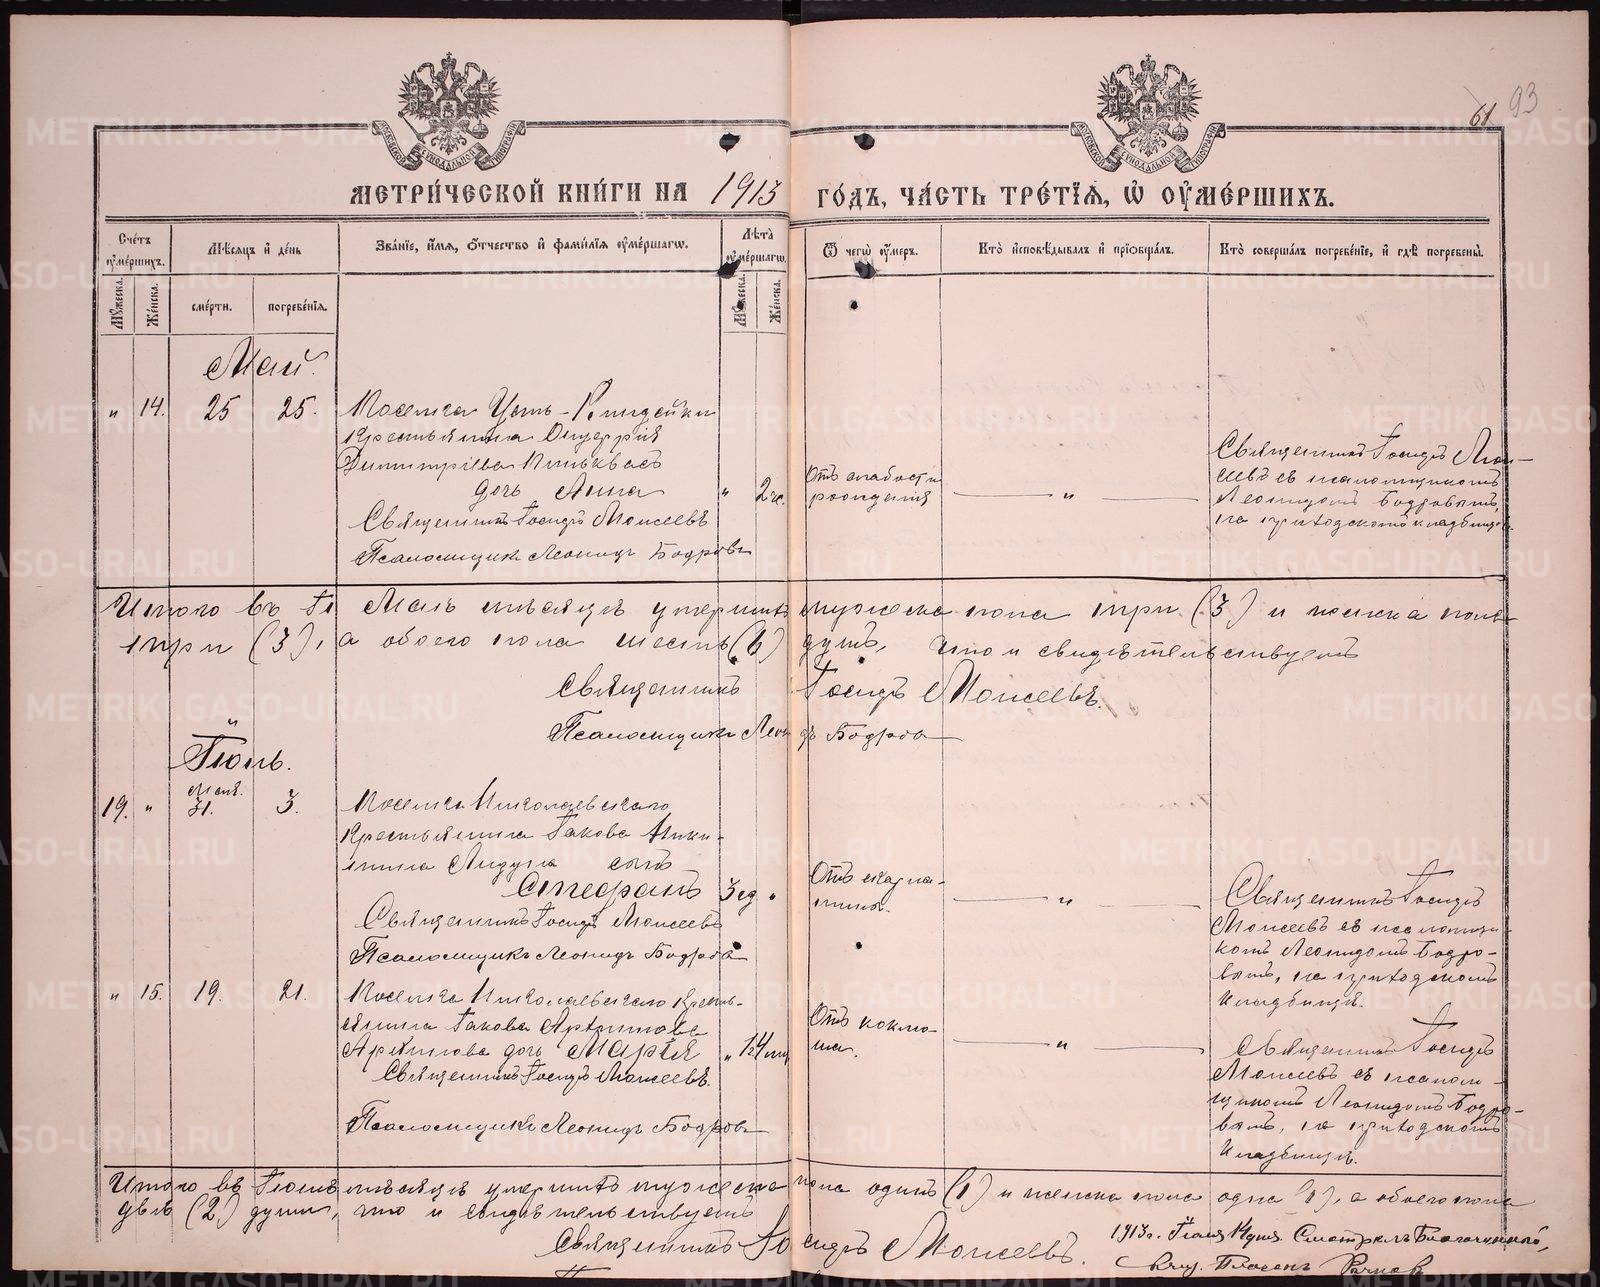 61 93
МЕТРИ́ЧЕСКОЙ КНИ́ГИ НА 1913 ГО́ДЪ, ЧА́СТЬ ТРЕ́ТІѦ, Ѡ ОУМЕ́РШИХЪ.
Счетъ оумершихъ.
Мужеска. Женска.
Мѣсяцъ и день
смерти. погребенія.
Званіе, имя, отчество и фамилія оумершагѡ.
Лѣта оумершагѡ.
Мужеска. Женска.
Ѿ чегѡ оумеръ.
Кто исповѣдывалъ и пріобщалъ.
Кто совершалъ погребеніе, и гдѣ погребены.
Май.
" 14. 25 25.
Поселка Усть-
Крестьянина
Димитріева
дочь Анна " 2 ч.
Священникъ Іосифъ Моисеевъ
Псаломщикъ Леонидъ Бодровъ
Отъ слабости
рожденія
Священникъ Іосифъ Мои-
сеевъ съ псаломщикомъ
Леонидомъ Бодровымъ
на приходскомъ кладбищѣ.
Итого въ Маѣ мѣсяцѣ умершихъ мужеска пола три (3) и женска пола
три (3), а обоего пола шесть (6) душъ, что и свидѣтельствуетъ
Священникъ Іосифъ Моисеевъ.
Псаломщикъ Леонидъ Бодровъ
Іюнь.
19. " Мая 31. 3.
Поселка Николаевскаго
крестьянина Іакова Ники-
тина сынъ
Стефанъ 3 г. "
Священникъ Іосифъ Моисеевъ
Псаломщикъ Леонидъ Бодровъ
Отъ скарла-
тины.
Священникъ Іосифъ
Моисеевъ съ псаломщи-
комъ Леонидомъ Бодро-
вымъ, на приходскомъ
кладбищѣ.
" 15. 19. 21.
Поселка Николаевскаго кресть-
янина Іакова
дочь Марія "
Священникъ Іосифъ Моисеевъ.
Псаломщикъ Леонидъ Бодровъ
Отъ коклю-
ша.
Священникъ Іосифъ
Моисеевъ съ псалом-
щикомъ Леонидомъ Бодро-
вымъ, на приходскомъ
кладбищѣ.
Итого въ Іюнѣ мѣсяцѣ умершихъ мужеска пола одинъ (1) и женска пола одна (1), а обоего пола
двѣ (2) души, что и свидѣтельствуетъ
Священникъ Іосифъ Моисеевъ.
1913 г. Смотрѣлъ Благочинный,
METRIKI.GASO-URAL.RU